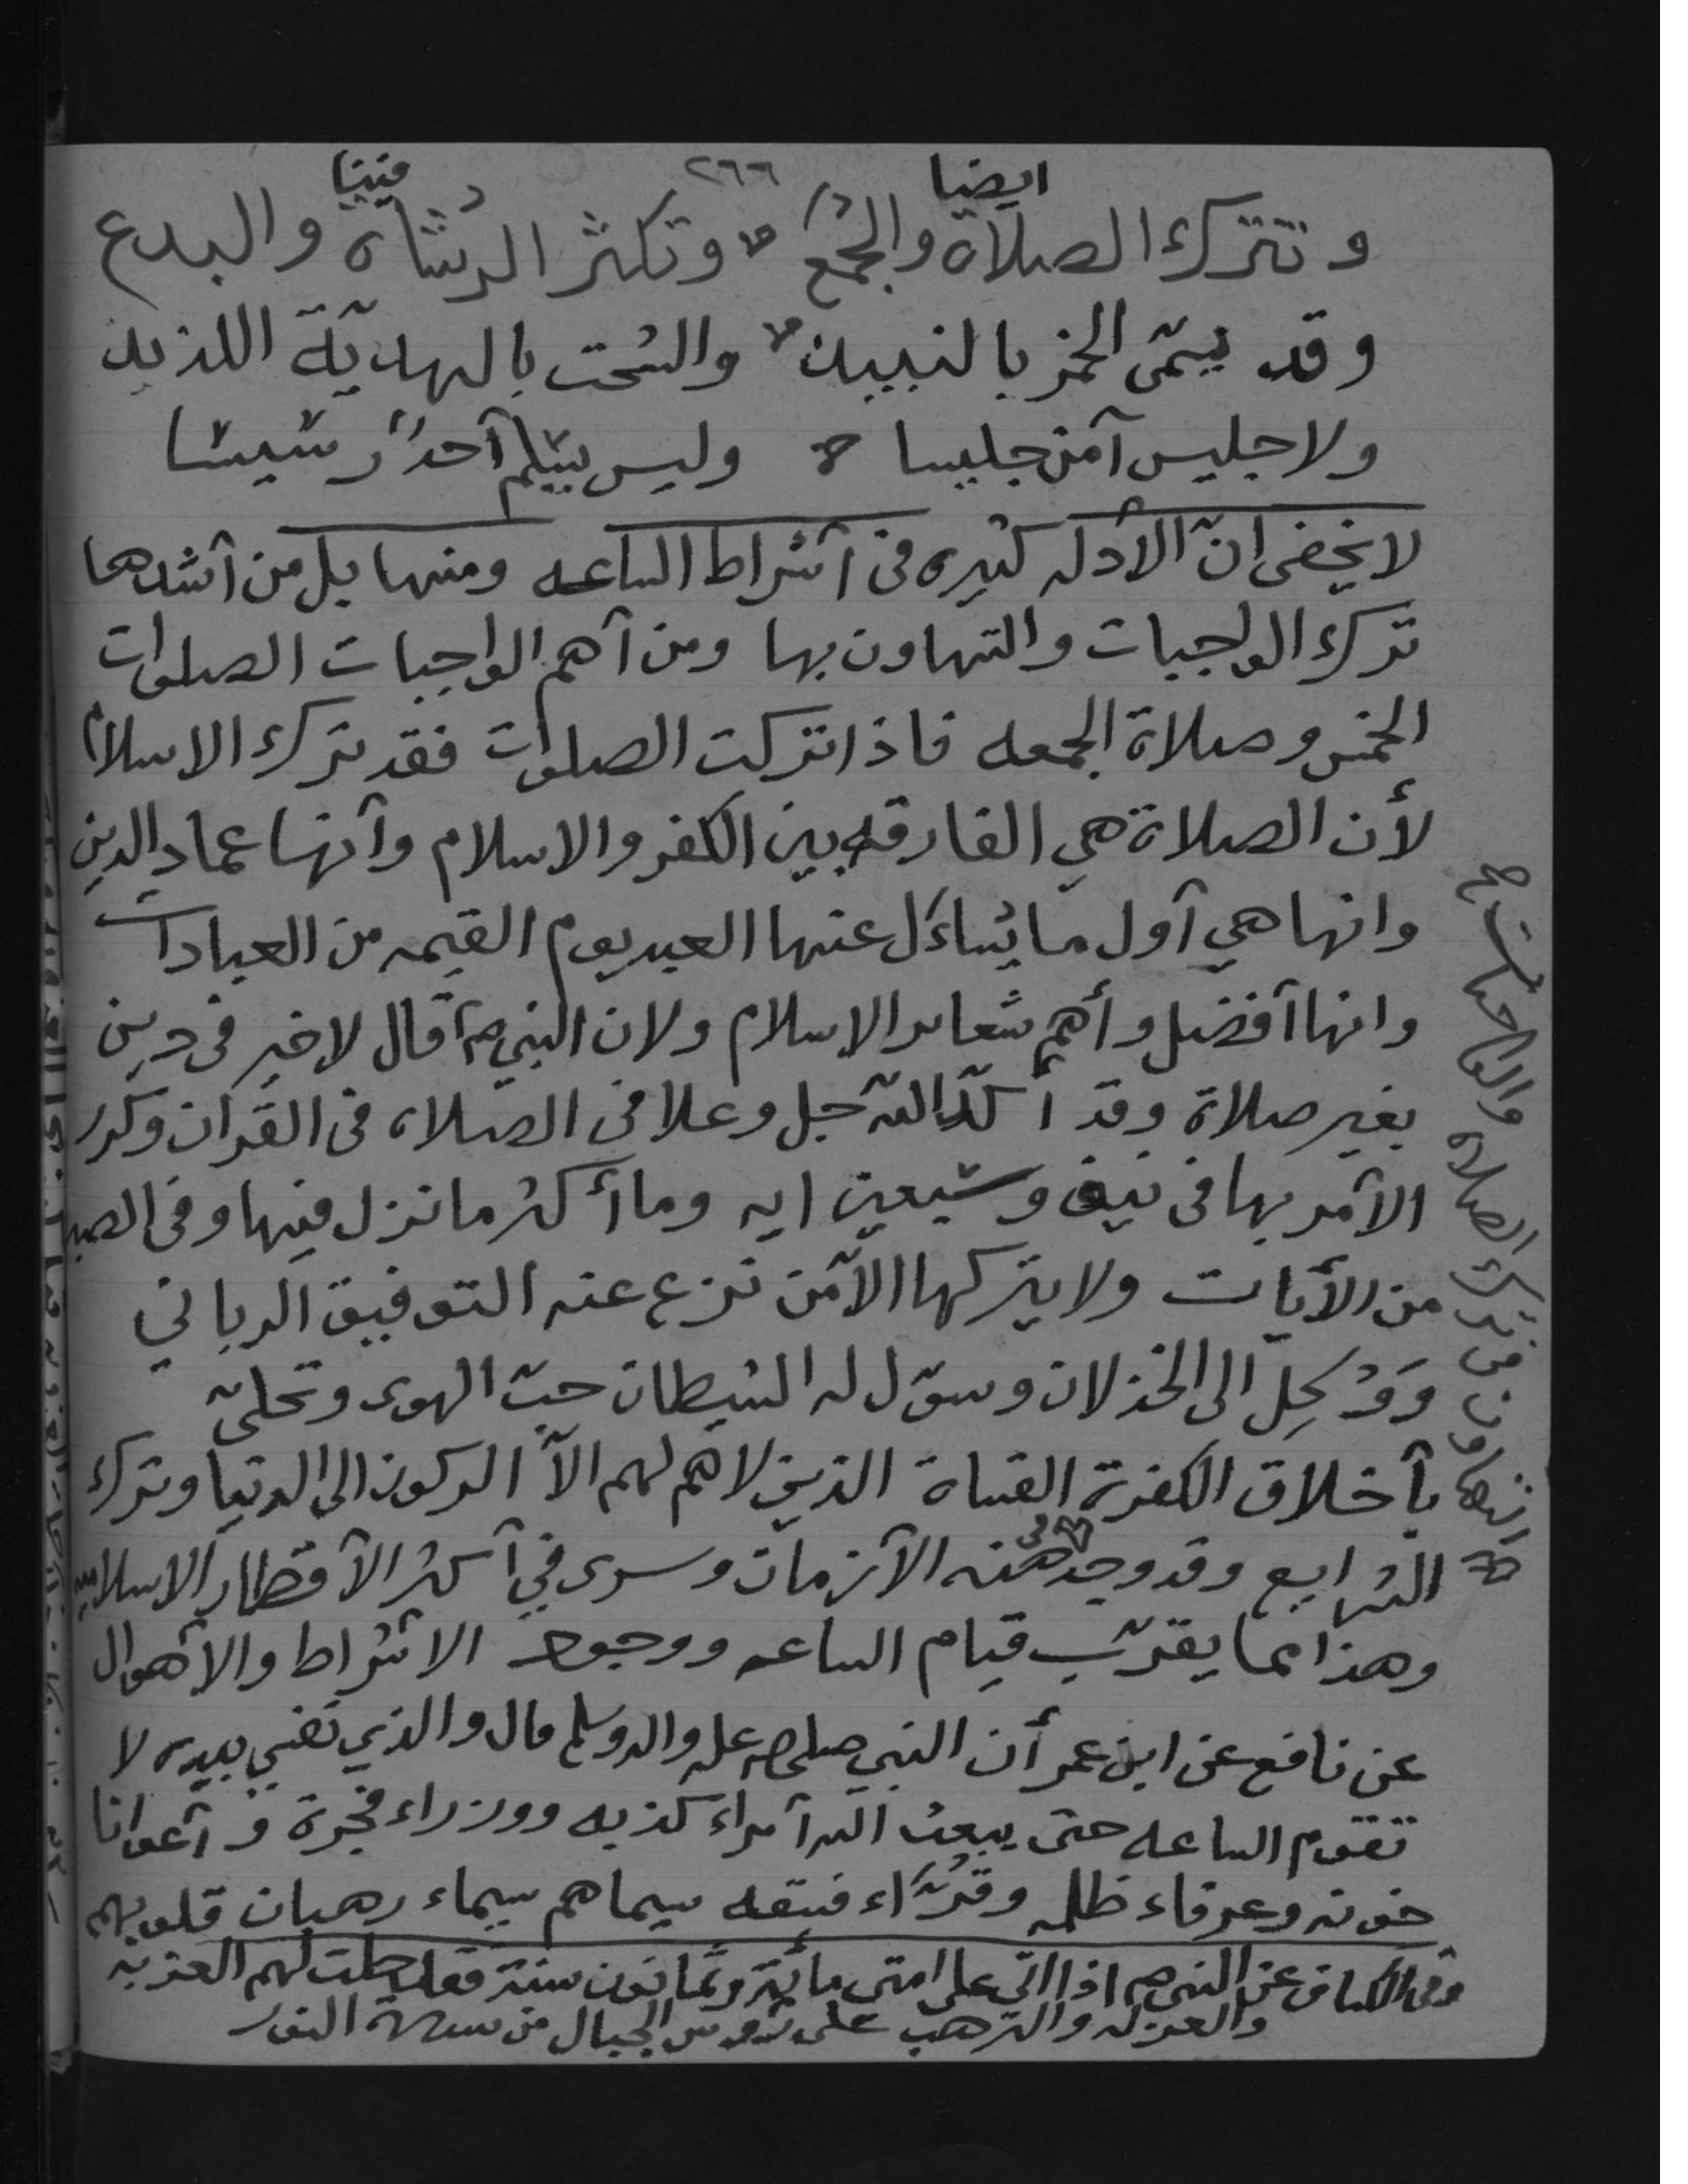 ٢٦٦
وتترك الصلاة والجُمَع أيضا وتكثر الرشاة فينا والبدع
وقد يسمّى الخمر بالنبيذ والسحت بالهديّة اللذيذ
ولا جليس آمن جليسا وليس يسلم أحد
لا يخفى انّ الأدله كثيره فى أشراط الساعه ومنها بل من أشدها
ترك الواجبات والتهاون بها ومن أهم الواجبات الصلوات
الخمس وصلاة الجمعه فاذا تركت الصلوات فقد ترك الاسلام
لأن الصلاة هي الفارقه بين الكفر والاسلام وأنها عماد الدين
وانها هي أول ما يُساءَل عنها العبد يوم القيمه من العبادات
وانها أفضل وأهم شعائر الاسلام ولان النبي ص قال لاخير فى دين
بغير صلاة وقد أكّد الله جل وعلا فى الصلاه فى القرآن وكرر
الأمر بها فى نيف وسبعين ايه وما أكثر ما نزل فيها وفى الصبر
من الأيات ولا يتركها الا من نزع عنه التوفيق الرباني
وَوُكِلَ الى الخذلان وسوّل له الشيطان حبّ الهوى وتحلىّ
بأخلاق الكفرة القساة الذين لا هم لهم الاّ الركون الى الدنيا وترك
الشرايع وقد وجد فى هذه الأزمان وسرى في أكثر الأقطار الاسلاميه
وهذا مما يقرّب قيام الساعه ووجود الاشراط والأهوال
عن نافع عن ابن عمر أن النبي صلى الله عليه واله وسلم قال والذي نفسي بيده لا
تقوم الساعه حتى يبعث الله أمراء كذبه ووزراء فجرة وأعوانا
خونه وعرفاء ظلمه وقُرّاء فسقه سيماهم سيماء رهبان قلوبهم
وفى الكشاف عن النبى ص اذا اتى على امتى مائة وثمانون سنة فقد حلت لهم العزبه
والعزله والترهب على رؤوس الجبال من سورة النور
التهاون فى ترك الصلاه والواجبات